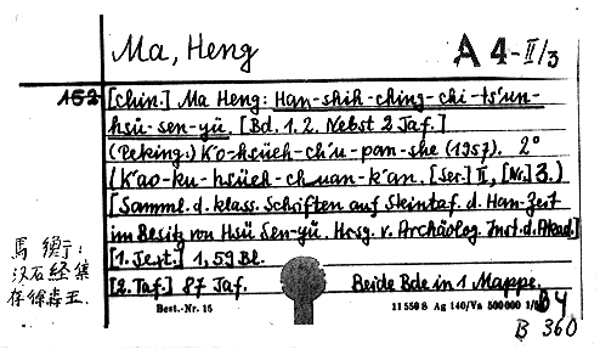 Ma, Heng
A 4-II/3
152
[Chin.] Ma Heng: Han-shih-ching-chi-ts'un-
hsü-sen-yü. [Bd. 1.2. Nebst 2 Taf.]
(Peking:) K'o-hsüeh-ch'u-pan-she (1957). 2°
(K'ao-ku-hsüeh-chuan-k'an. [Ser.] II, [Nr.] 3.)
[Samml. d. klass. Schriften auf Steintaf. d. Han-Zeit
im Besitz von Hsü Sen-yü. Hrsg. v. Archäolog. Inst. d. Akad.]
[1. Text.] 1, 59 Bl.
[2. Taf.] 87 Taf. Beide Bde in 1 Mappe.
馬 衡:
汉石經集
存徐森玉.
Best.-Nr. 15
11 550 8 Ag 140/Va 500 000
B 4
B 360